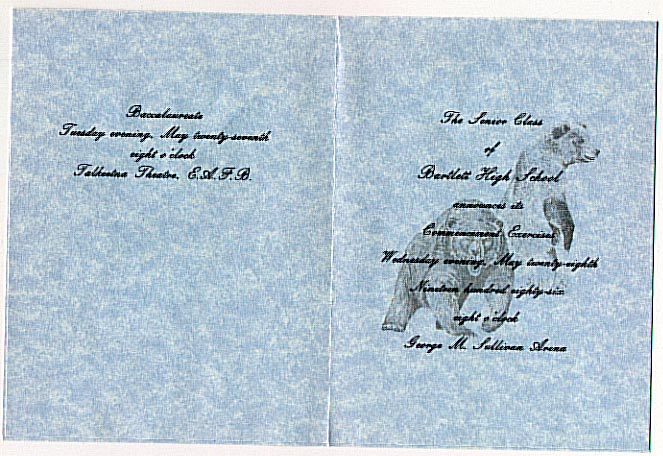 Baccalaureate
Tuesday evening, May twenty-seventh
eight o'clock
Talkeetna Theatre, E.A.F.B.
The Senior Class
of
Bartlett High School
announces its
Commencement Exercises
Wednesday evening, May twenty-eighth
Nineteen hundred eighty-six
eight o'clock
George M. Sullivan Arena